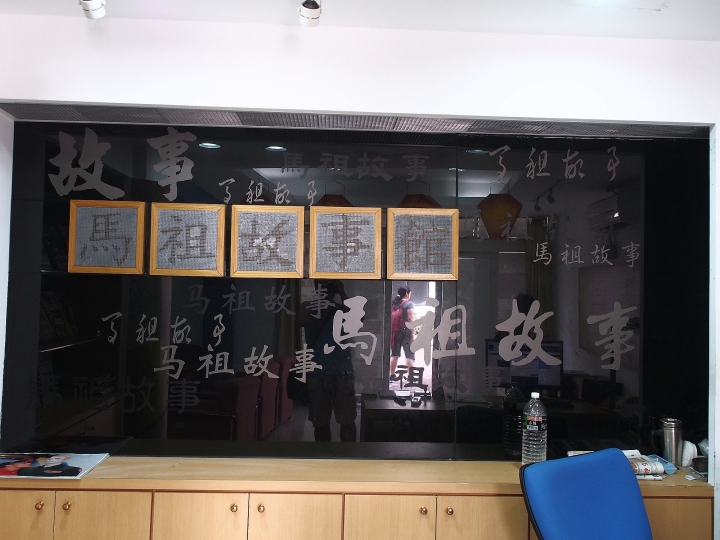 故事
馬祖故事
馬祖故事
馬祖故事
馬祖故事館
馬祖故事
马祖故事
馬祖故事
馬祖故事
马祖故事
馬祖故事
祖